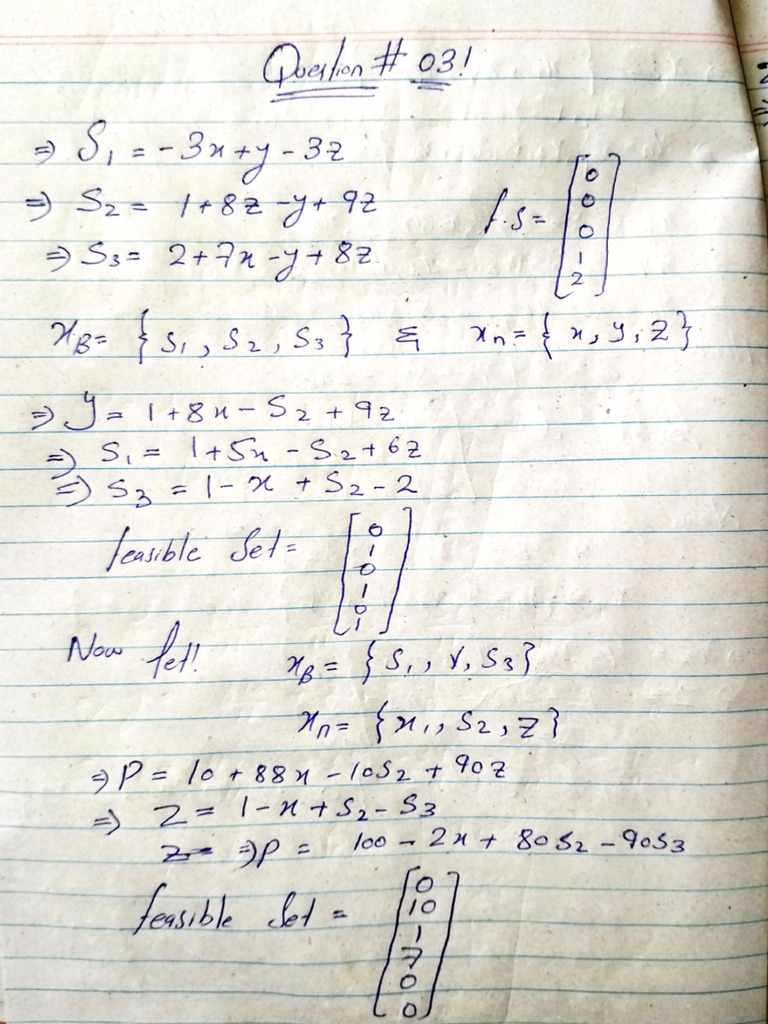 Question # 03!
⇒ S₁ = -3x+y-3z
⇒ S₂ = 1+8z-y+9z
f.s = [0 0 0 1 2]
⇒ S₃ = 2+7x-y+8z
x_B = {S₁, S₂, S₃} & x_n = {x, y, z}
⇒ y = 1+8x-S₂+9z
⇒ S₁ = 1+5x-S₂+6z
⇒ S₃ = 1-x+S₂-2
feasible Set = [0 1 0 1 0 1]
Now let! x_B = {S₁, Y, S₃}
x_n = {x₁, S₂, z}
⇒ P = 10+88x-10S₂+90z
⇒ Z = 1-x+S₂-S₃
⇒ P = 100-2x+80S₂-90S₃
feasible Set = [0 10 1 7 0 0]